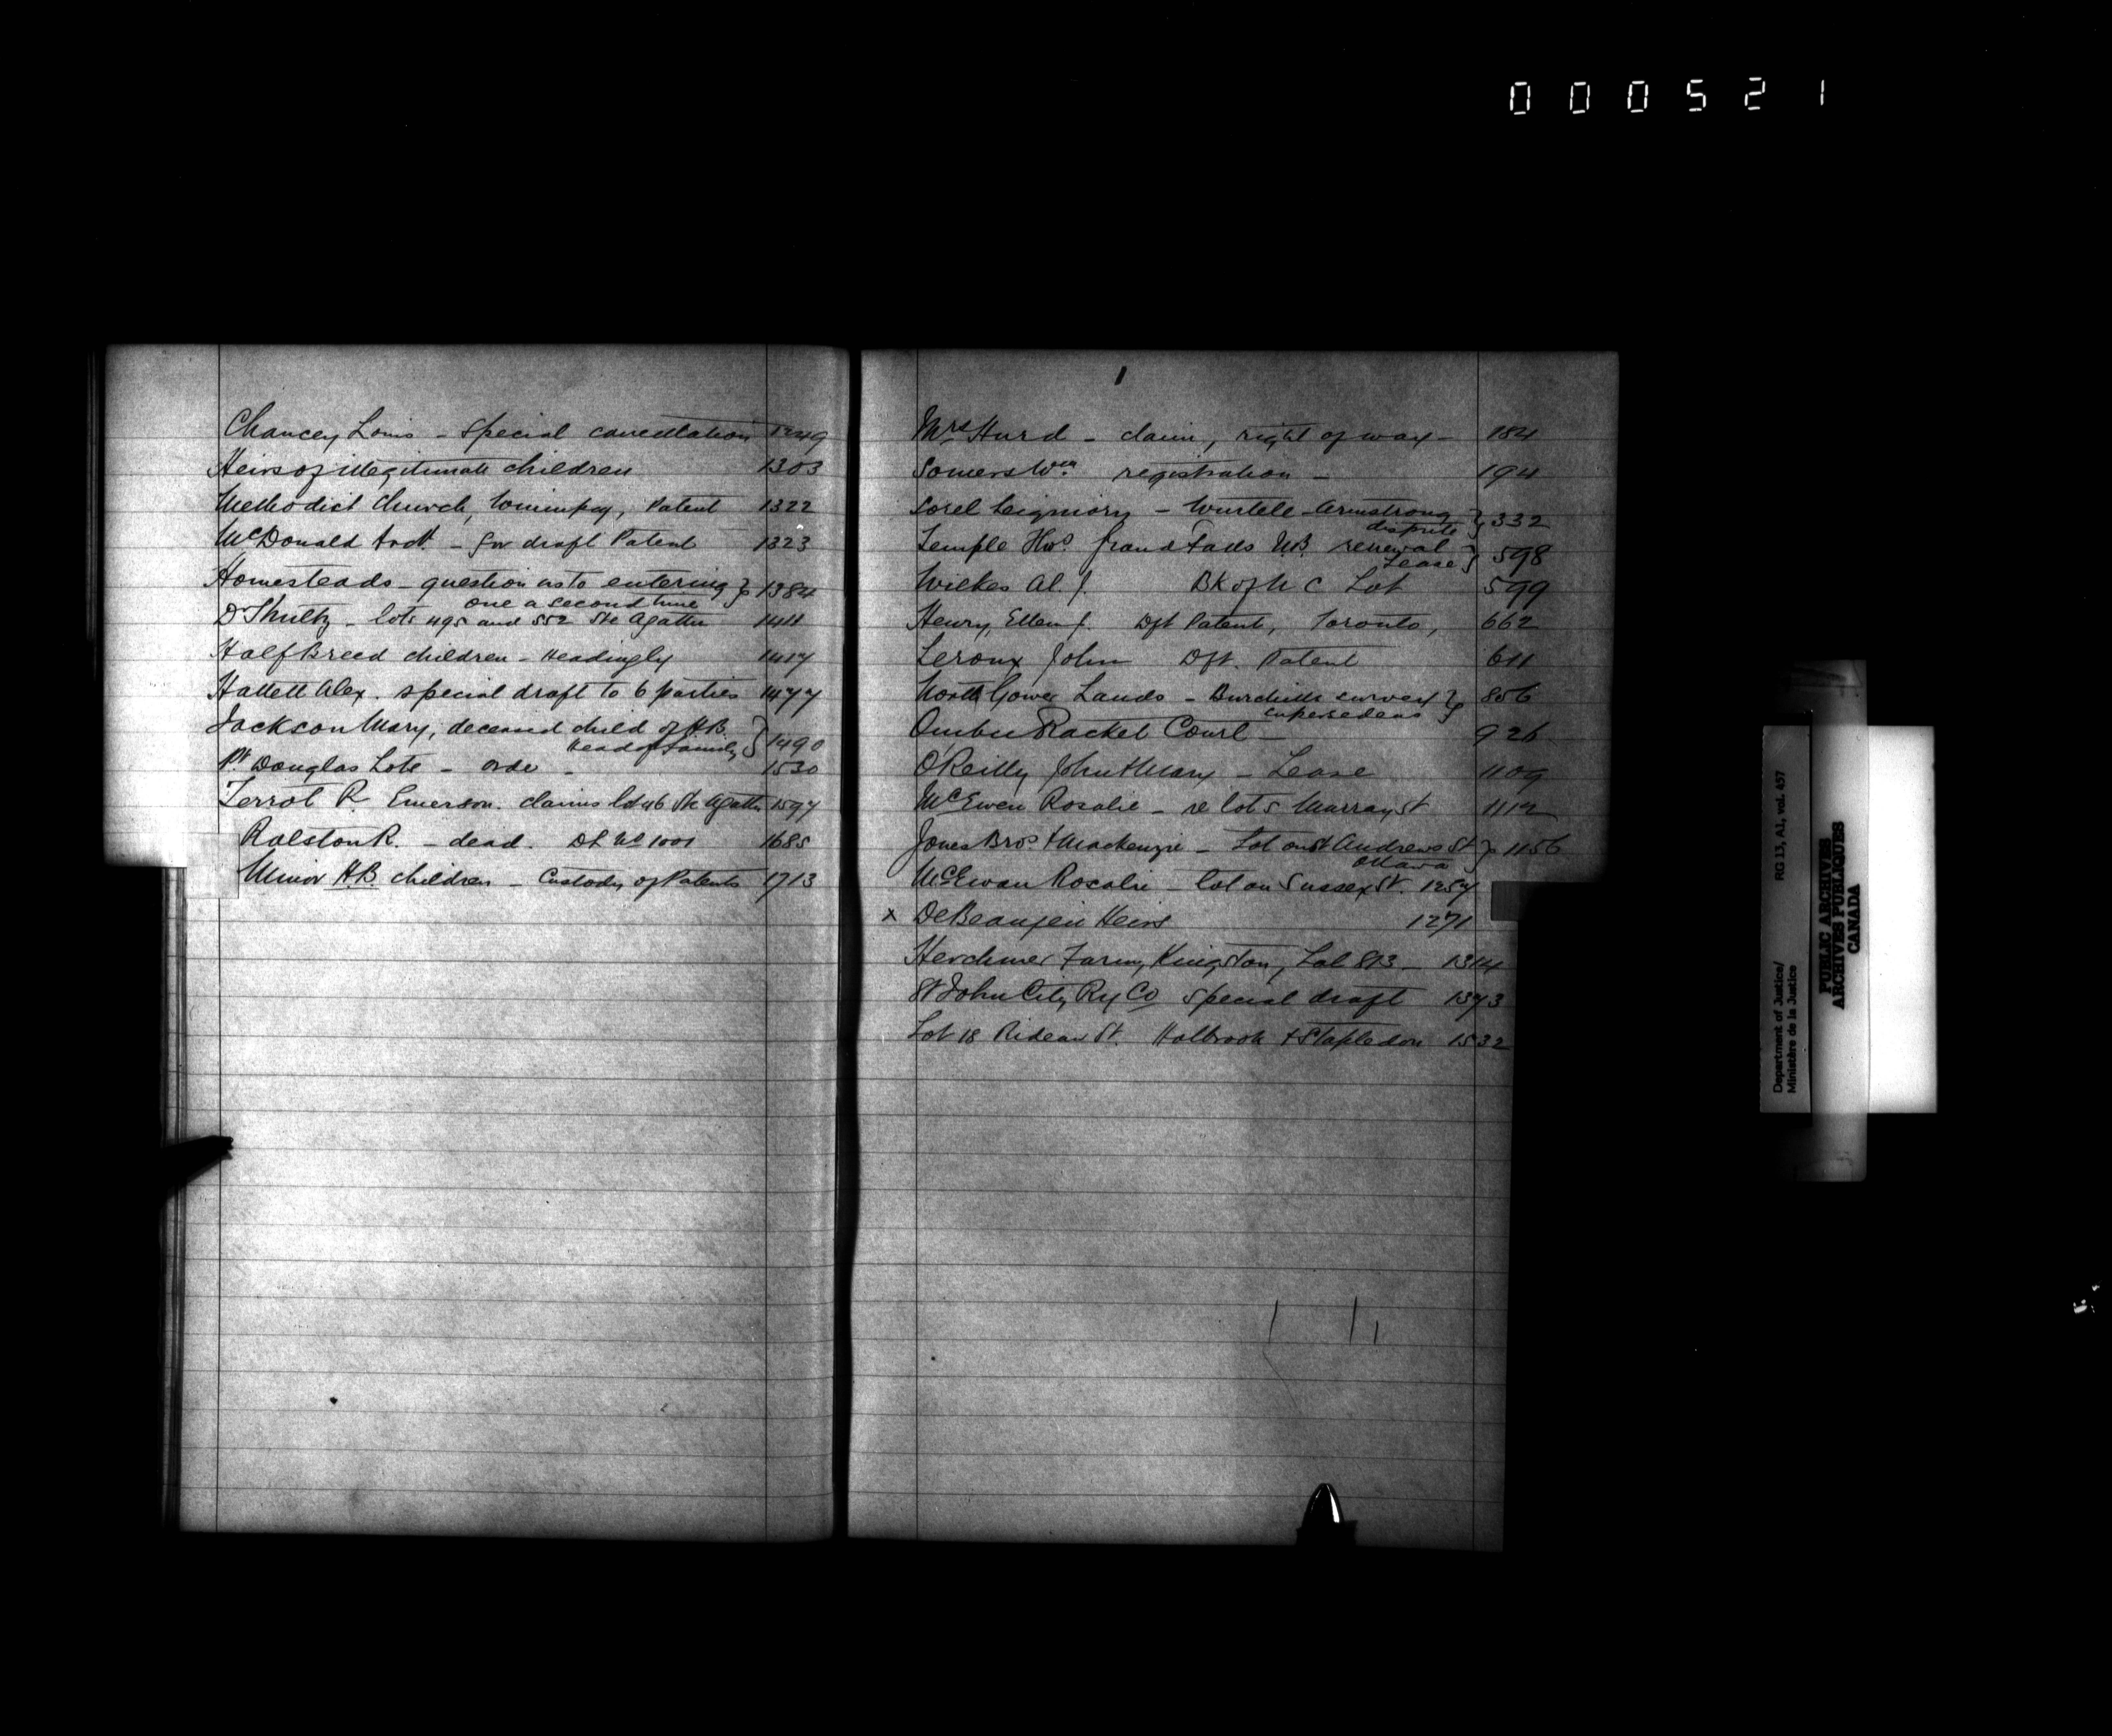 000521
Chancey Louis - Special cancellation 1249
Heirs of illegitimate children 1303
Methodist Church, Winnipeg, Patent 1322
McDonald Archd - for draft Patent 1323
Homesteads - question as to entering } 1384
one a second time
Dr Shultz - lots 495 and 552 Ste Agathe 1411
Half Breed children - Headingly 1417
Hallett Alex. special draft to 6 parties 1477
Jackson Mary, deceased child of H.B. } 1490
Head of family
Pt Douglas Lots - order - 1530
R Emerson. claims lot 46 Ste Agathe 1597
Ralston R. - dead. Dft No 1001 1685
Minor H.B. children - Custody of Patents 1713
Mrs Hurd - claim, right of way - 184
Somers Wm registration - 194
Sorel Seigniory - Wurtele - Armstrong } 332
dispute
Temple Thos. Grand Falls N.B. renewal } 598
Lease
Wilkes Al. J. Bk of U C Lot 599
Henry, Ellen J. Dft Patent, Toronto, 662
Leroux John Dft. Patent 611
North Gower Lands - Burchills survey } 856
supersedeas
Quebec Racket Court - 926
O'Reilly John & Mary - Lease 1109
McEwen Rosalie - re lot 5 Murray St 1112
Jones Bros & Mackenzie - Lot on St Andrews St } 1156
Ottawa
McEwan Rosalie - lot on Sussex St. 1257
x DeBeaujeu Heirs 1271
Herchmer Farm, Kingston, Lot 813 - 1314
St John City Ry Co special draft 1373
Lot 18 Rideau St. Holbrook & Stapledon 1532
Department of Justice/
Ministère de la Justice
RG 13, A1, vol. 457
PUBLIC ARCHIVES
ARCHIVES PUBLIQUES
CANADA